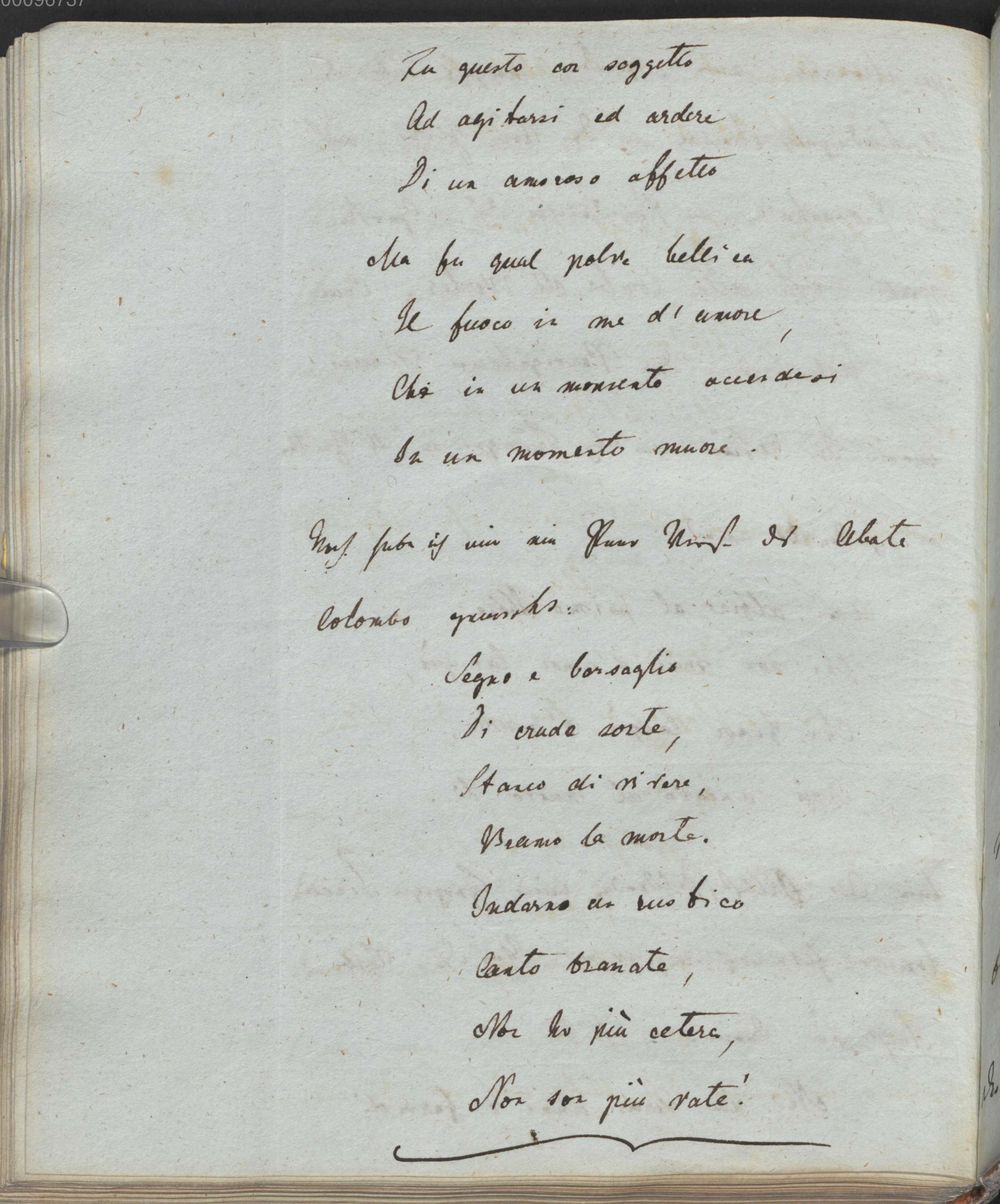 00096737
Fu questo cor soggetto
Ad agitarsi ed ardere
Di un amoroso affetto
Ma fu qual polve bellica
Il fuoco in me d'amore,
Che in un momento accendesi
In un momento muore.
Noch habe ich ein paar Verse des Abate
Colombo
Segno e bersaglio
Di cruda sorte,
Stanco di vivere,
Bramo la morte.
Indarno un rustico
Canto bramate,
Non ho più cetera,
Non son più vate!